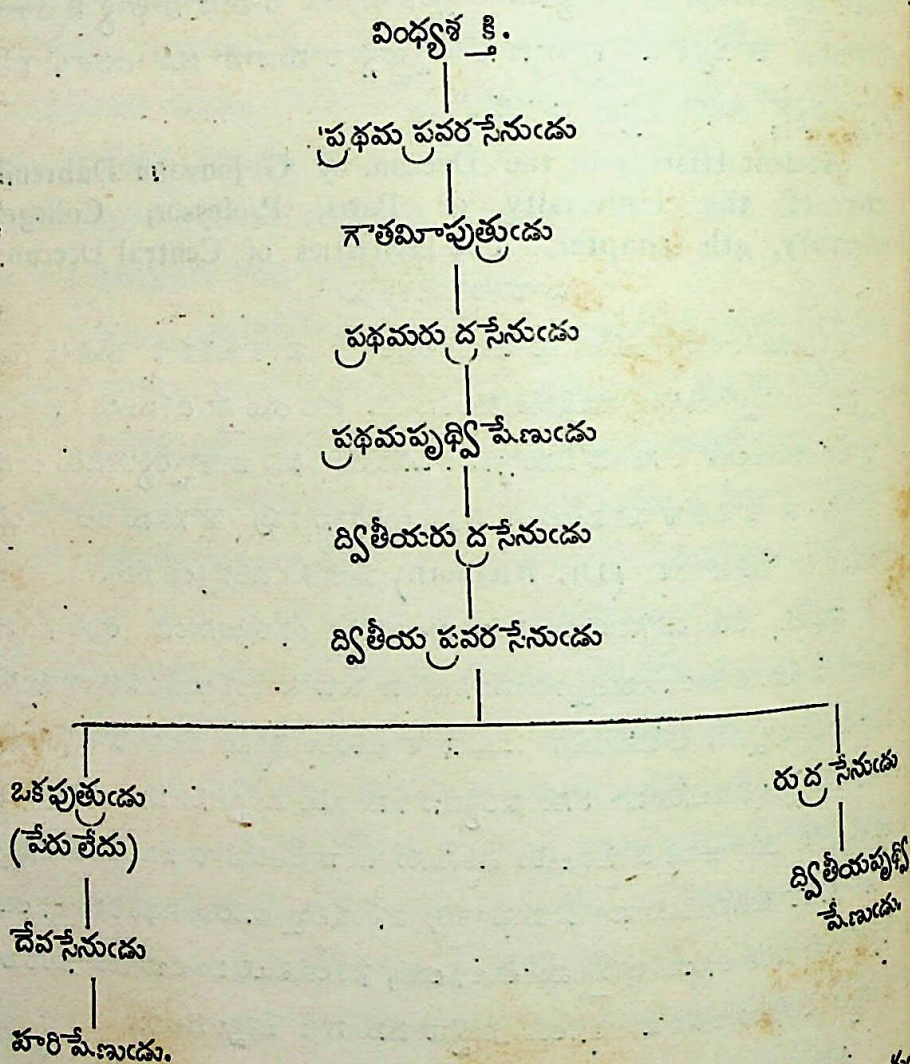 వింధ్యశక్తి.
ప్రథమ ప్రవర సేనుఁడు
గౌతమీపుత్రుఁడు
ప్రథమరుద్రసేనుఁడు
ప్రథమపృథ్వి షేణుఁడు
ద్వితీయరుద్రసేనుఁడు
ద్వితీయ ప్రవర సేనుఁడు
ఒకపుత్రుఁడు
(పేరు లేదు)
దేవసేనుఁడు
హరి షేణుఁడు.
రుద్ర సేనుఁడు
ద్వితీయపృథ్వీ
షేణుఁడు.